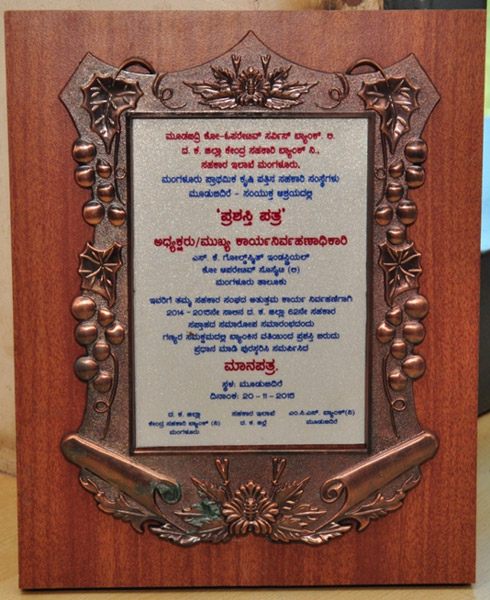 ಮೂಡಬಿದ್ರಿ ಕೋ-ಓಪರೇಟಿವ್ ಸರ್ವಿಸ್ ಬ್ಯಾಂಕ್. ಲಿ.
ದ. ಕ. ಜಿಲ್ಲಾ ಕೇಂದ್ರ ಸಹಕಾರಿ ಬ್ಯಾಂಕ್ ನಿ.,
ಸಹಕಾರ ಇಲಾಖೆ ಮಂಗಳೂರು.
ಮಂಗಳೂರು ಪ್ರಾಥಮಿಕ ಕೃಷಿ ಪತ್ತಿನ ಸಹಕಾರಿ ಸಂಸ್ಥೆಗಳು
ಮೂಡುಬಿದಿರೆ - ಸಂಯುಕ್ತ ಆಶ್ರಯದಲ್ಲಿ
'ಪ್ರಶಸ್ತಿ ಪತ್ರ'
ಅಧ್ಯಕ್ಷರು/ಮುಖ್ಯ ಕಾರ್ಯನಿರ್ವಹಣಾಧಿಕಾರಿ
ಎಸ್. ಕೆ. ಗೋಲ್ಡ್‌ಸ್ಮಿತ್ ಇಂಡಸ್ಟ್ರಿಯಲ್
ಕೋ ಆಪರೇಟಿವ್ ಸೊಸೈಟಿ (ಲಿ)
ಮಂಗಳೂರು ತಾಲೂಕು
ಇವರಿಗೆ ತಮ್ಮ ಸಹಕಾರ ಸಂಘದ ಅತ್ಯುತ್ತಮ ಕಾರ್ಯ ನಿರ್ವಹಣೆಗಾಗಿ
2014 - 2015ನೇ ಸಾಲಿನ ದ. ಕ. ಜಿಲ್ಲಾ 62ನೇ ಸಹಕಾರ
ಸಪ್ತಾಹದ ಸಮಾರೋಪ ಸಮಾರಂಭದಂದು
ಗಣ್ಯರ ಸಮಕ್ಷಮದಲ್ಲಿ ಬ್ಯಾಂಕಿನ ವತಿಯಿಂದ ಪ್ರಶಸ್ತಿ ಬಿರುದು
ಪ್ರಧಾನ ಮಾಡಿ ಪುರಸ್ಕರಿಸಿ ಸಮರ್ಪಿಸಿದ
ಮಾನಪತ್ರ.
ಸ್ಥಳ: ಮೂಡುಬಿದಿರೆ
ದಿನಾಂಕ: 20 - 11 - 2015
ದ. ಕ. ಜಿಲ್ಲಾ ಸಹಕಾರ ಇಲಾಖೆ ಎಂ.ಸಿ.ಎಸ್. ಬ್ಯಾಂಕ್(ಲಿ)
ಕೇಂದ್ರ ಸಹಕಾರಿ ಬ್ಯಾಂಕ್ (ನಿ) ದ. ಕ. ಜಿಲ್ಲೆ ಮೂಡುಬಿದಿರೆ
ಮಂಗಳೂರು